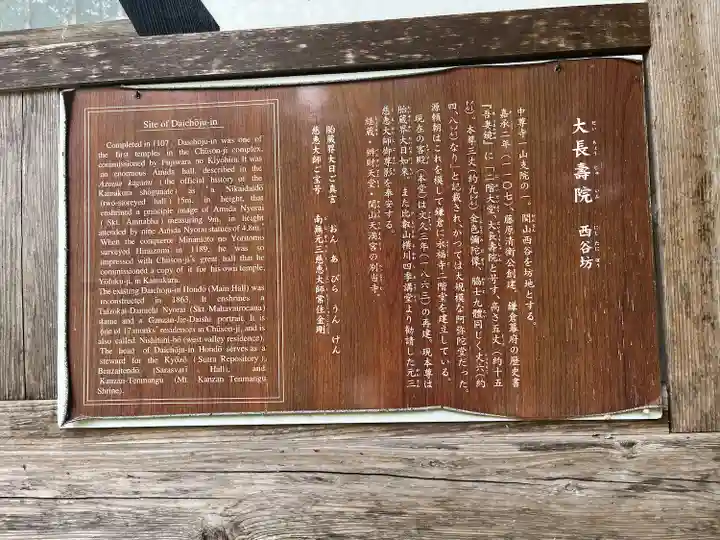 大長壽院 西谷坊
だい ちょう じゅ いん にし たに ぼう
中尊寺一山支院の一。関山西谷を坊地とする。
嘉承二年（一一〇七）、藤原清衡公創建。鎌倉幕府の歴史書
『吾妻鏡』に「二階大堂、大長壽院と号す、高さ五丈（約十五
㍍）、本尊三丈（約九㍍）金色彌陀像、脇士九體同じく丈六（約
四、八㍍）なり」と記載され、かつては大規模な阿弥陀堂だった。
源頼朝はこれを模して鎌倉に永福寺二階堂を建立している。
現在の客殿（本堂）は文久三年（一八六三）の再建。現本尊は
胎蔵界大日如来、また比叡山横川四季講堂より勧請した元三
慈恵大師御尊影を奉安する。
経蔵・辨財天堂・関山天満宮の別当寺。
胎蔵界大日ご真言 おん あ びら うん けん
慈恵大師ご宝号 南無元三慈恵大師常住金剛
Site of Daichōju-in
Completed in (1107), Daichōju-in was one of
the first temples in the Chūson-ji complex,
commissioned by Fujiwara no Kiyohira. It was
an enormous Amida hall, described in the
Azuma kagami (the official history of the
Kamakura shogunate) as "a Nikaidaidō
(two-storeyed hall) 15m. in height, that
enshrined a principle image of Amida Nyorai
( Skt. Amitabha) measuring 9m. in height
attended by nine Amida Nyorai statues of 4.8m."
When the conqueror Minamoto no Yoritomo
surveyed Hiraizumi in 1189, he was so
impressed with Chūson-ji's great hall that he
commissioned a copy of it for his own temple,
Yōfuku-ji, in Kamakura.
The existing Daichōju-in Hondō (Main Hall) was
reconstructed in 1863. It enshrines a
Taizōkai-Dainichi Nyorai (Skt. Mahavairocana)
statue and a Ganzan-Jie-Daishi portrait. It is
one of 17 monks' residences in Chūson-ji, and is
also called Nishitani-bō (west valley residence).
The head of Daichōju-in Hondō serves as a
steward for the Kyōzō ( Sutra Repository ),
Benzaitendō (Sarasvati Hall), and
Kanzan-Tenmangu (Mt. Kanzan Tenmangu
Shrine).